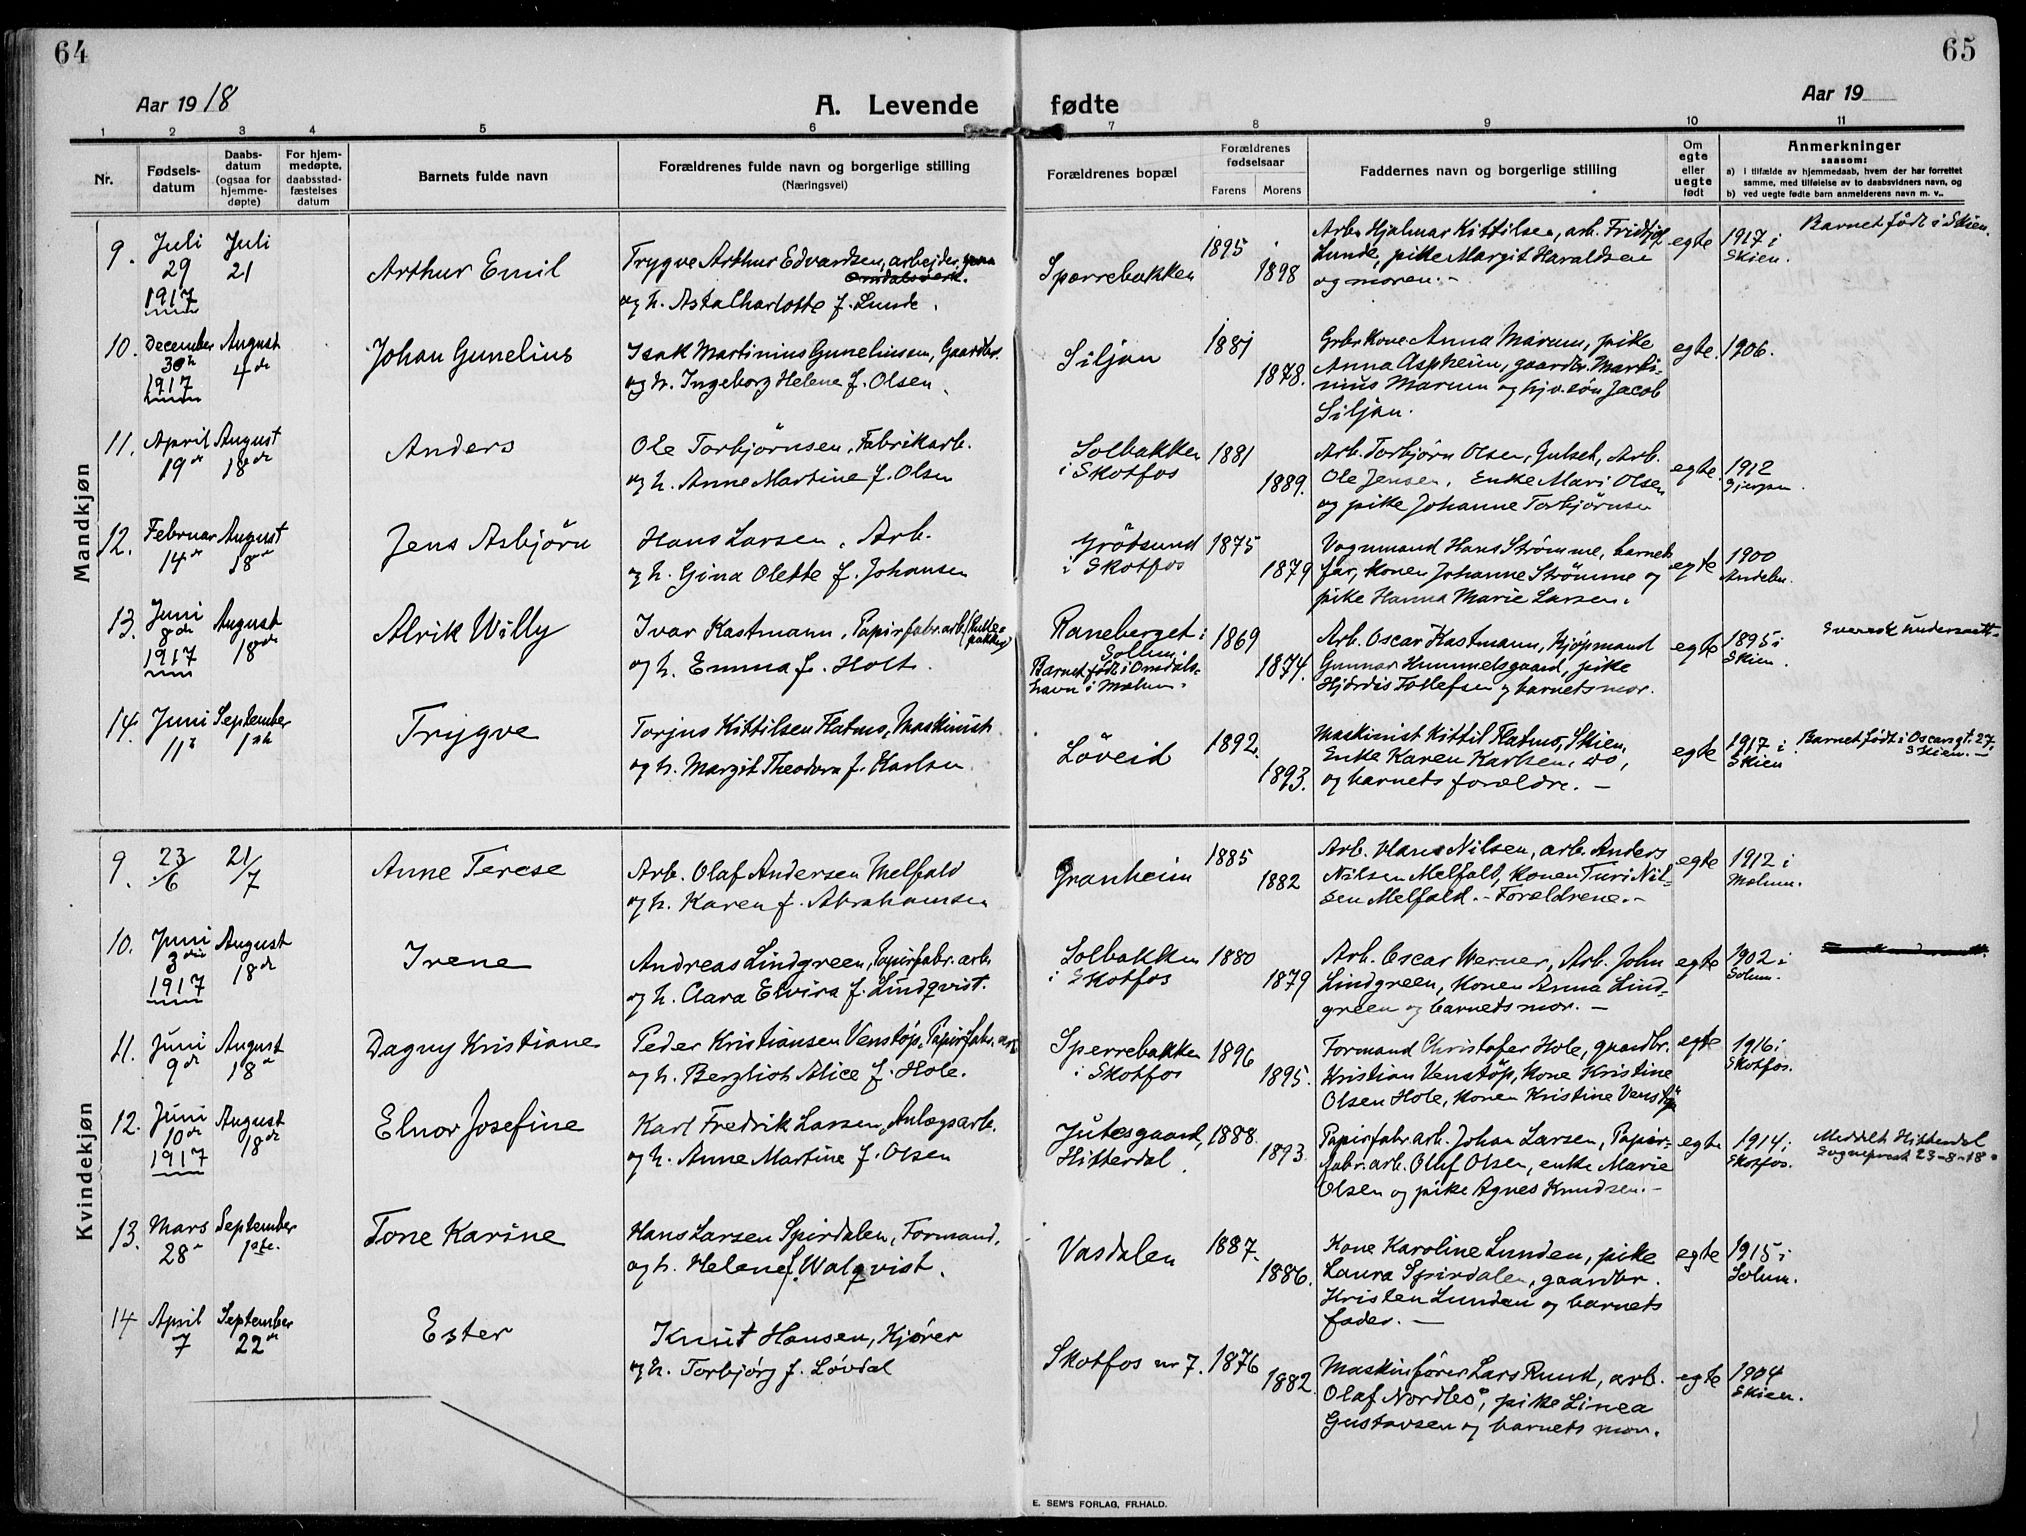 64
65
Aar 1918
A. Levende fødte
Aar 19
1 2 3 4 5 6 7 8 9 10 11
Nr.
Fødsels-
datum
Daabs-
datum
(ogsaa for
hjemme-
døpte)
For hjem-
medøpte,
daabsstad-
fæstelses
datum
Barnets fulde navn
Forældrenes fulde navn og borgerlige stilling
(Næringsvei)
Forældrenes bopæl
Forældrenes
fødselsaar
Farens Morens
Faddernes navn og borgerlige stilling
Om
egte
eller
uegte
født
Anmerkninger
saasom:
a) i tilfælde av hjemmedaab, hvem der har forrettet
samme, med tilføielse av to daabsvidners navn, og
b) ved uegte fødte barn anmelderens navn m. v..
Mandkjøn
9. Juli 29 1917
Juli 21
Arthur Emil
Trygve Arthur Edvardsen, arbejder
og h. Asta Charlotte f. Lunde.
Sperrebakken
1895 1898
Arb. Hjalmar Kittilsen, arb. Fridtjof
Lunde, pike Margit Haraldsen
og moren. -
egte
1917 i
Skien.
Barnet født i Skien.
10. December 30te 1917
August 4de
Johan Gunelius
Isak Martinius Guneliussen, Gaardbr.
og h. Ingeborg Helene f. Olsen.
Siljan
1881 1878.
Grbr. kone Anna Marum, pike
Anna Aspheim, gaardbr. Marti-
nius Marum og hjv. søn Jacob
Siljan.
egte.
1906.
11. April 19de
August 18de
Anders
Ole Torbjørnsen, Fabrikarb.
og h. Anne Martine f. Olsen
Solbakken
i Skotfos
1881 1889.
Arb. Torbjørn Olsen, Gulset, Arb.
Ole Jensen, Enke Mari Olsen
og pike Johanne Torbjørnsen
egte.
1912
Gjerpen.
12. Februar 14de
August 18de
Jens Asbjörn
Hans Larsen, Arb.
og h. Gina Olette f. Johansen
Grödsund
i Skotfos
1875 1879
Vognmand Hans Strømme, barnets
far, konen Johanne Strömme og
pike Hanna Marie Larsen.
egte
1900
Andebu.
13. Juni 8de 1917
August 18de
Alrik Willy
Ivar Kastmann, Papirfabr.arb. (Rulle-
pakker)
og h. Emma f. Holt.
Raneberget i
Sollum.
Barnet født i Omdals-
havn i Mælum.
1869 1874.
Arb. Oscar Kastmann, Kjøpmand
Gunnar Hummelsgaard, pike
Hjördis Tollefsen og barnets mor.
egte
1895 i
Skien.
Svensk undersaatt.
14. Juni 11te
September 1ste
Trygve
Torjus Kittilsen Flatmo, Maskinist
og h. Margit Theodora f. Karlsen.
Löveid
1892. 1893.
Maskinist Kittil Flatmo, Skien,
Enke Karen Karlsen, do,
og barnets forældre. -
egte
1917 i
Skien
Barnet født i Oscarsgt. 27,
Skien. -
Kvindekjøn
9. 23/6
21/7
Anne Terese
Arb. Olaf Andersen Melfald
og h. Karen f. Abrahamsen
Granheim
1885 1882
Arb. Hans Nilsen, arb. Anders
Nilsen Melfald, konen Turi Nil-
sen Melfald. - Forældrene. -
egte
1912 i
Mælum.
10. Juni 3die 1917
August 18de
Irene
Andreas Lindgreen, Papirfabr. arb.
og h. Clara Elvira f. Lindqvist.
Solbakken
i Skotfos
1880 1879
Arb. Oscar Werner, Arb. John
Lindgreen, konen Anna Lind-
green og barnets mor. -
egte
1902 i
Solum.
11. Juni 9de
August 18de
Dagny Kristiane
Peder Kristiansen Venstøp, Papirfabr. arb
og h. Bergliot Alice f. Hole.
Sperrebakken
i Skotfos
1896 1895.
Formand Christofer Hole, gaardbr.
Kristian Venstøp, kone Kristine
Olsen Hole, konen Kristine Venstöp
egte
1916 i
Skotfos.
12. Juni 10de 1917
August 18de
Elnor Josefine
Karl Fredrik Larsen, Anlægsarb.
og h. Anne Martine f. Olsen
Jutesgaard,
Hitterdal.
1888. 1893.
Papirfabr. arb. Johan Larsen, Papir-
fabr. arb. Oluf Olsen, enke Marie
Olsen og pike Agnes Knudsen. -
egte
1914 i
Skotfos.
Meddelt Hitterdal
Sogneprest 23-8-18.
13. Mars 28de
September 1ste.
Tone Karine
Hans Larsen Spirdalen, Formand,
og h. Helene f. Walqvist.
Vasdalen
1887. 1886.
Kone Karoline Lunden, pike
Laura Spirdalen, gaardbr.
Kristen Lunden og barnets
fader. -
egte
1915 i
Solum.
14 April 7
September 22de
Ester
Knut Hansen, Kjører
og h. Torbjørg f. Løvdal
Skotfos nr 7.
1876 1882.
Maskinfører Lars Ruud, arb.
Olaf Nordbö, pike Linea
Gustavsen og barnets mor.
egte
1904
Skien.
E. SEM'S FORLAG, FR.HALD.